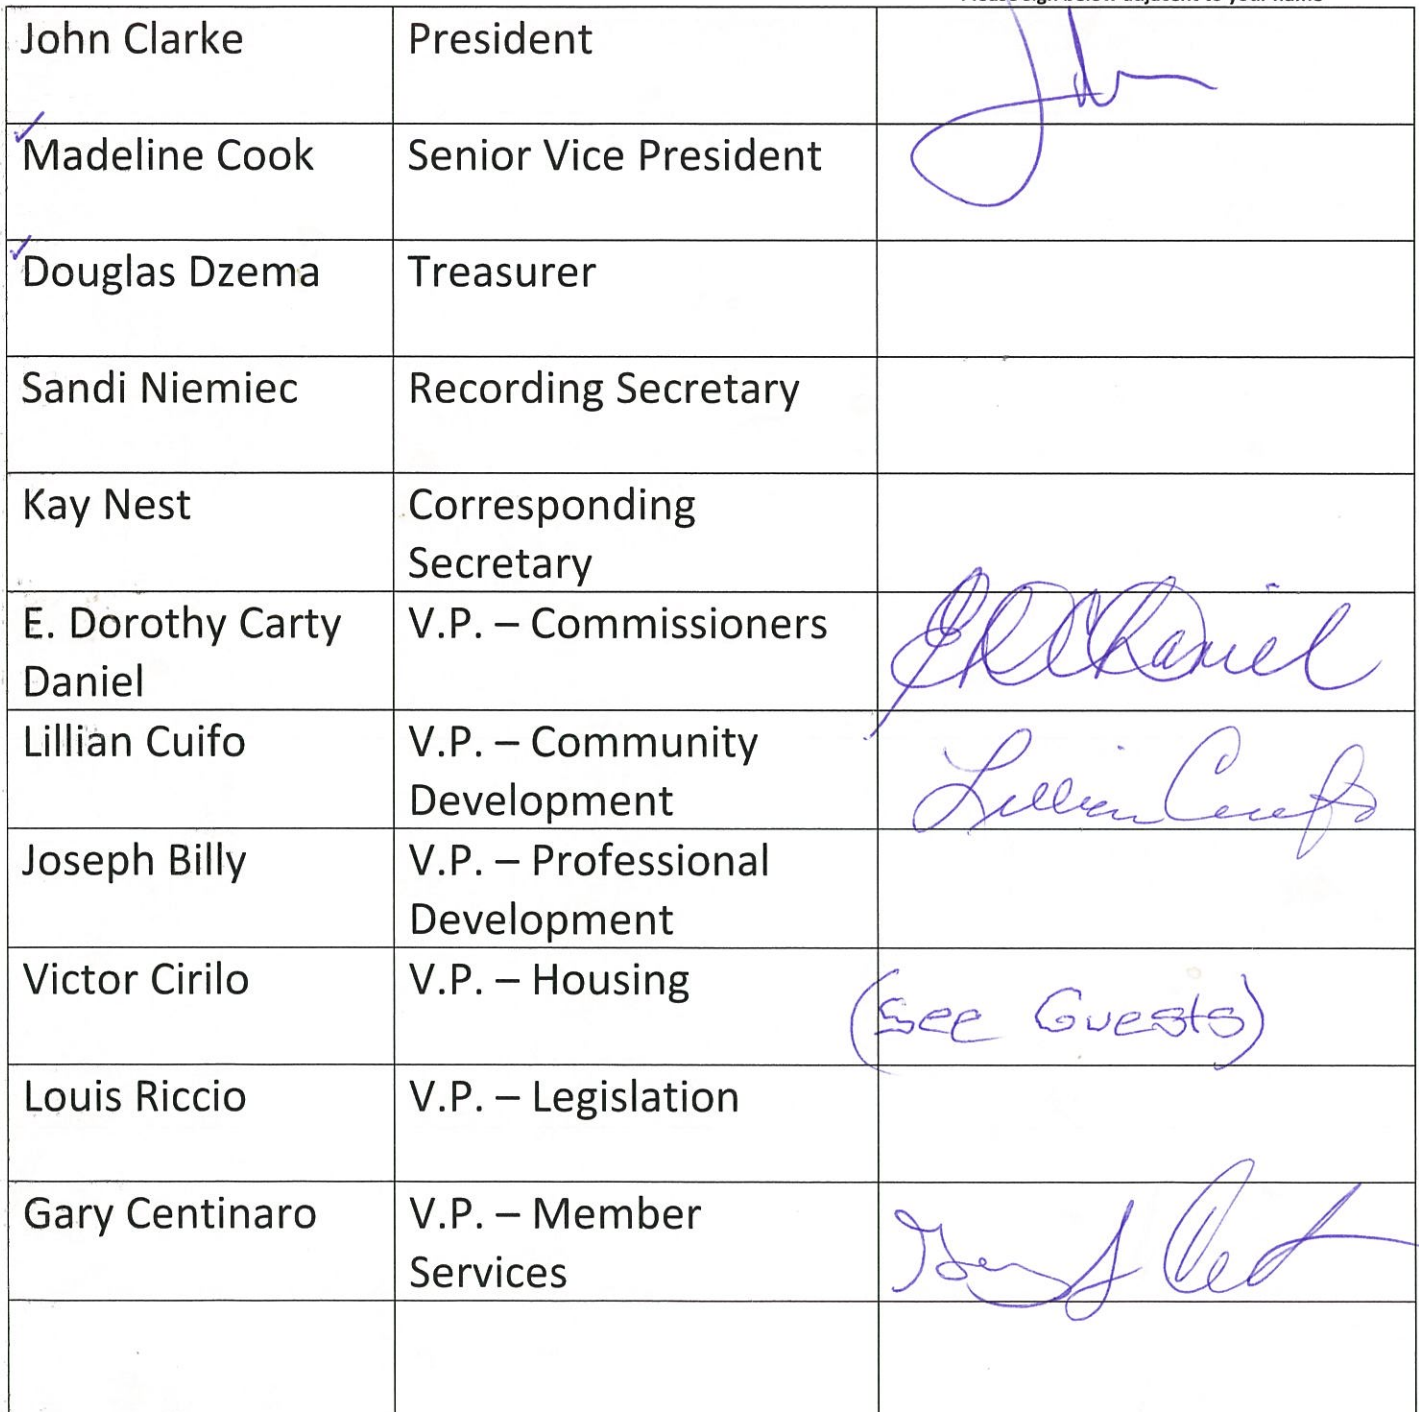 Please sign below adjacent to your name
John Clarke President John
✓ Madeline Cook Senior Vice President
✓ Douglas Dzema Treasurer
Sandi Niemiec Recording Secretary
Kay Nest Corresponding
Secretary
E. Dorothy Carty V.P. – Commissioners EDCDaniel
Daniel
Lillian Cuifo V.P. – Community Lillian Cuifo
Development
Joseph Billy V.P. – Professional
Development
Victor Cirilo V.P. – Housing (See Guests)
Louis Riccio V.P. – Legislation
Gary Centinaro V.P. – Member
Services